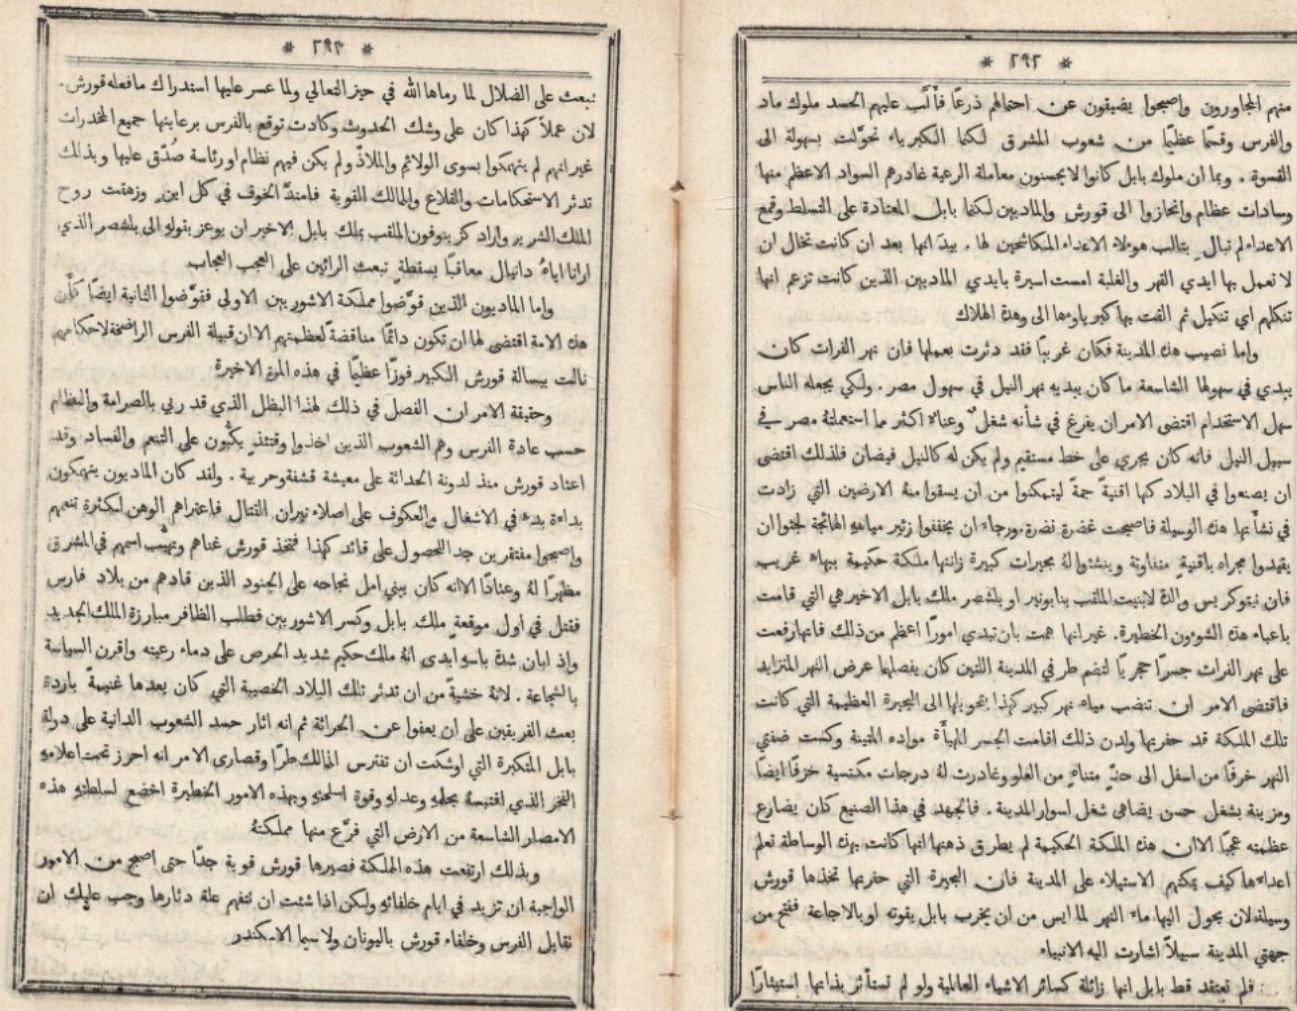 * ٢٩٢ *
منهم المجاورون واصبحوا يضيقون عن احتمالهم ذرعًا فألَّب عليهم الحسد ملوك ماد
والفرس وقسمًا عظيمًا من شعوب المشرق لكنما الكبرياء تحوَّلت بسهولة الى
القسوة . وبما ان ملوك بابل كانوا لا يحسنون معاملة الرعية غادرهم السواد الاعظم منها
وسادات عظام وانحازوا الى قورش والماديين لكنما بابل المعتادة على التسلط وقمع
الاعداء لم تبالِ بتالب هولاء الاعداء المتكاشحين لها . بيدَ انها بعد ان كانت تخال ان
لا تعمل بها ايدي القهر والغلبة امست اسيرة بايدي الماديين الذين كانت تزعم انها
تنكلهم اي تنكيل ثم القت بها كبرياوها الى وهدة الهلاك
واما نصيب هذه المدينة فكان غريبًا فقد دثرت بعملها فان نهر الفرات كان
يبدي في سهولها الشاسعة ما كان يبديه نهر النيل في سهول مصر . ولكي يجعله الناس
سهل الاستخدام اقتضى الامر ان يفرغ في شأنه شغلٌ وعناءٌ اكثر مما استعملتهُ مصر في
سبيل النيل فانه كان يجري على خط مستقيم ولم يكن له كالنيل فيضان فلذلك اقتضى
ان يصنعوا في البلاد كلها اقنيةً جمةً ليتمكنوا من ان يسقوا منهُ الارضين التي زادت
في نشأتها هذه الوسيلة فاصبحت غضرة نضرة ورجاءَ ان يخففوا زئير مياههِ الهائجة لجئوا ان
يقيدوا مجراه باقنيةٍ متفاوتة وينشئوا لهُ بحيرات كبيرة زانتها ملكة حكيمة ببهاء غريب
فان نيتوكريس والدة لابنيت الملقب بنابونير او بلشصر ملك بابل الاخير هي التي قامت
باعباء هذه الشوءون الخطيرة. غير انها همت بان تبدي امورًا اعظم من ذلك فانها رفعت
على نهر الفرات جسرًا حجريًا لتضم طرفي المدينة اللتين كان يفصلهما عرض النهر المتزايد
فاقتضى الامر ان تنضب مياه نهر كبير كهذا بتحويلها الى البحيرة العظيمة التي كانت
تلك الملكة قد حفرتها ولدن ذلك اقامت الجسر المهيأة مواده المتينة وكست ضفتي
النهر خزفًا من اسفل الى حدٍّ متناهٍ من العلو وغادرت لهُ درجات مكتسية خزفًا ايضًا
ومزينة بشغل حسن يضاهى شغل اسوار المدينة . فالجهد في هذا الصنيع كان يضارع
عظمته عجبًا الا ان هذه الملكة الحكيمة لم يطرق ذهنها انها كانت بهذه الوساطة تعلم
اعداءها كيف يمكنهم الاستيلاء على المدينة فان البحيرة التي حفرتها تخذها قورش
وسيلة لان يحول اليها ماء النهر لما ايس من ان يخرب بابل بقوته او بالاجاعة ففتح من
جهتي المدينة سبيلاً اشارت اليه الانبياء
فلم تعتقد قط بابل انها زائلة كسائر الاشياء العالمية ولو لم تستأثر بذاتها استيثارًا
* ٢٩٣ *
يبعث على الضلال لما رماها الله في حيز التعالي ولما عسر عليها استدراك ما فعله قورش.
لان عملاً كهذا كان على وشك الحدوث وكادت توقع بالفرس برعايتها جميع المخدرات
غير انهم لم ينهمكوا بسوى الولائم والملاذّ ولم يكن فيهم نظام او رئاسة صُدّق عليها وبذلك
تدثر الاستحكامات والقلاع والممالك القوية فامتدَّ الخوف في كل اين. وزهقت روح
الملك الشرير واراد كزينوفون الملقب بملك بابل الاخير ان يوعز بقوله الى بلشصر الذي
ارانا اياهُ دانيال معاقبًا بسقطةٍ تبعث الرائين على العجب العجاب
واما الماديون الذين قوَّضوا مملكة الاشوريين الاولى فقوَّضوا الثانية ايضًا كأن
هذه الامة اقتضى لها ان تكون دائمًا مناقضةً لعظمتهم الا ان قبيلة الفرس الراضخة لاحكامهم
نالت ببسالة قورش الكبير فوزًا عظيمًا في هذه المرة الاخيرة
وحقيقة الامر ان الفصل في ذلك لهذا البطل الذي قد ربي بالصرامة والنظام
حسب عادة الفرس وهم الشعوب الذين اخذوا وقتئذٍ يكبُّون على التنعم والفساد وقد
اعتاد قورش منذ لدونة الحداثة على معيشة قشفة وحربية . ولقد كان الماديون ينهمكون
بداءة بدء في الاشغال والعكوف على اصلاء نيران القتال فاعتراهم الوهن لكثرة تنعمهم
واصبحوا مفتقرين جدًا للحصول على قائد كهذا فتخذ قورش غناهم وتهيُّب اسمهم في المشرق
مظهرًا لهُ وعتادًا الا انه كان يبني امل نجاحه على الجنود الذين قادهم من بلاد فارس
فقتل في اول موقعةٍ ملك بابل وكسر الاشوريين فطلب الظافر مبارزة الملك الجديد
واذ ابان شدة باسهِ ابدى انهُ ملك حكيم شديد الحرص على دماء رعيته واقرن السياسة
بالشجاعة . لانهُ خشيةً من ان تدثر تلك البلاد الخصيبة التي كان يعدها غنيمةً باردة
بعث الفريقين على ان يعفوا عن الحراثة ثم انه اثار حسد الشعوب الدانية على دولة
بابل المتكبرة التي اوشكت ان تفترس الممالك طرًّا وقصارى الامر انه احرز تحت اعلامهِ
الفخر الذي اقتبسهُ بحلمهِ وعدلهِ وقوة اسلحتهِ وبهذه الامور الخطيرة اخضع لسلطتهِ هذه
الامصار الشاسعة من الارض التي فرَّع منها مملكتهُ
وبذلك ارتفعت هذه الملكة فصيرها قورش قوية جدًّا حتى اصبح من الامور
الواجبة ان تزيد في ايام خلفائهِ ولكن اذا شئت ان تتفهم علة دثارها وجب عليك ان
تقابل الفرس وخلفاء قورش باليونان ولا سيما الاسكندر